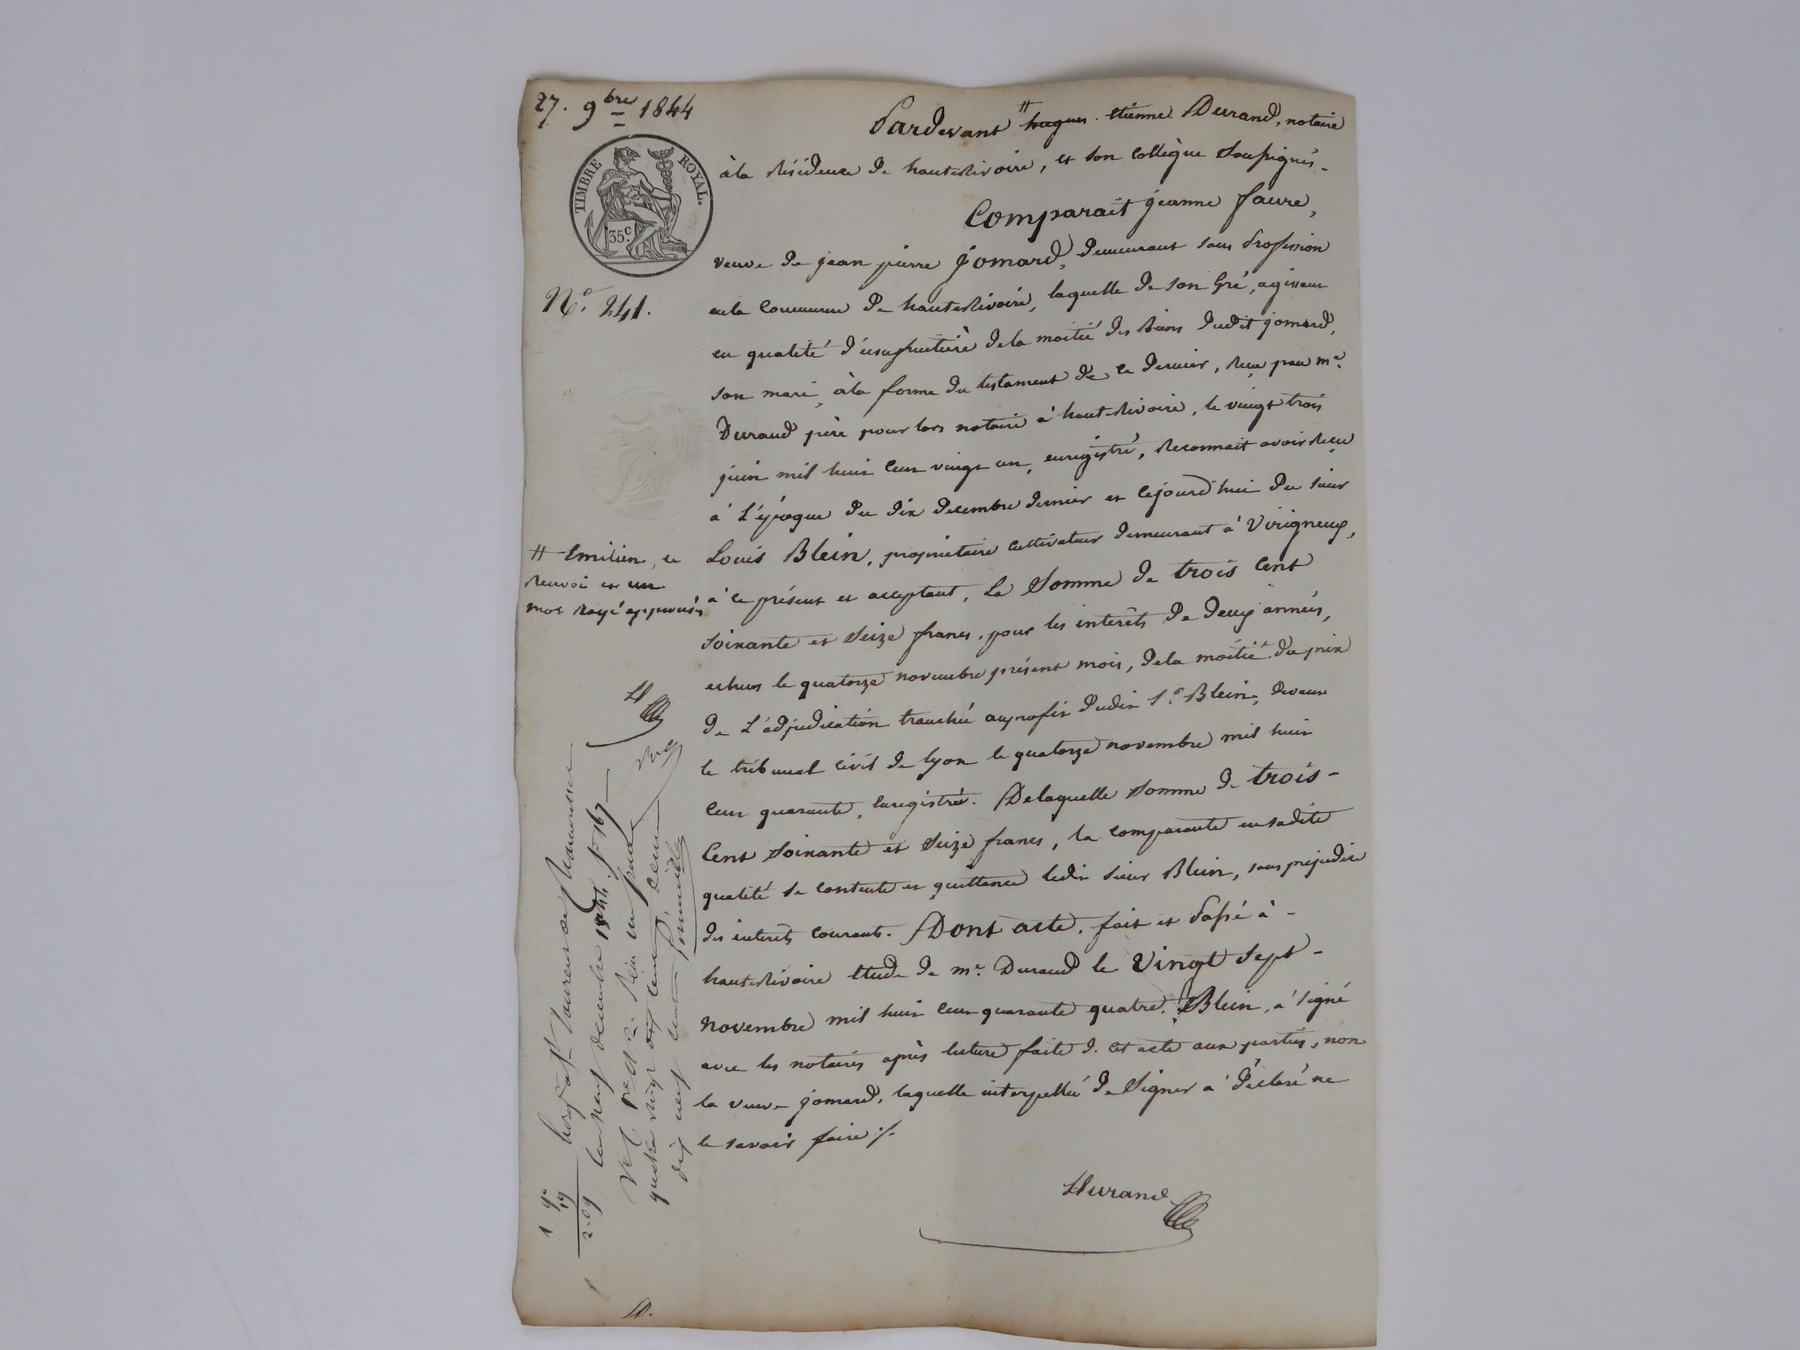 27. 9bre 1844
TIMBRE ROYAL.
35c.
No. 241.
Pardevant # hugues etienne Durand, notaire
à la résidence de hauterivoire, et son collègue soussignés.
Comparait jeanne faure,
veuve de jean pierre jomard, demeurant sans profession
en la commune de hauterivoire, laquelle de son Gré, agissant
en qualité d'usufruitière de la moitié des Biens dudit jomard,
son mari, à la forme du testament de ce dernier, reçu par me.
Durand père pour lors notaire à hauterivoire, le vingt trois
juin mil huit cent vingt un, enregistré, reconnait avoir reçu
à l'époque du dix decembre dernier et cejourd'hui du sieur
Louis Blein, propriétaire cultivateur demeurant à Virigneux,
à ce présent et acceptant, la Somme de trois Cent
soixante et seize francs, pour les interêts de deux années,
echues le quatorze novembre présent mois, de la moitié du prix
de l'adjudication tranchée au profit dudit Sr. Blein, devant
le tribunal civil de lyon le quatorze novembre mil huit
cent quarante, enregistrée. De laquelle somme de trois-
Cent soixante et seize francs, la comparante en sadite
qualité se contente et quittance ledit sieur Blein, sans préjudice
des interêts courants. Dont acte, fait et passé à -
hauterivoire étude de me. Durand le vingt sept -
novembre mil huit cent quarante quatre. Blein, a signé
avec les notaires après lecture faite d. cet acte aux parties, non
la veuve jomard, laquelle interpellée de signer a déclaré ne
le savoir faire ./.
Durand
# Emilien, ce
renvoi et un
mot rayé approuvés
D
1 90
19
2.09
le neuf decembre 1844 fo 167
D.